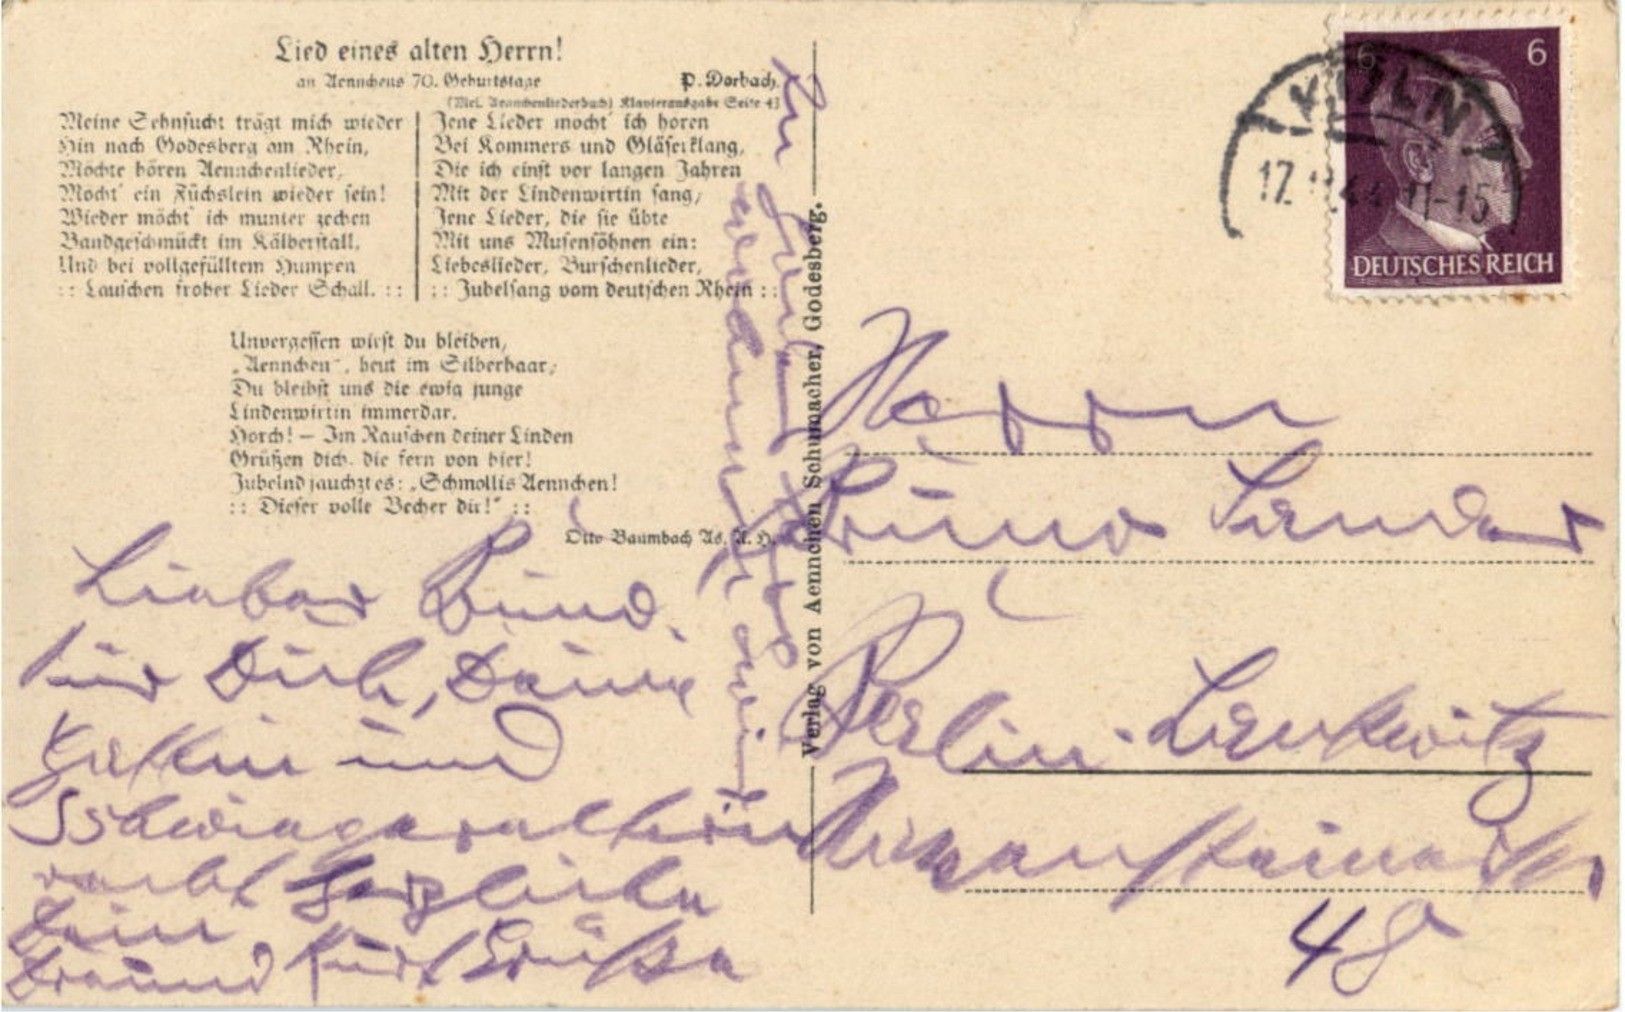 Lied eines alten Herrn!
an Aennchens 70. Geburtstage P. Dorbach.
(Mel. Aennchenliederbuch) Klavierausgabe Seite 43
Meine Sehnsucht trägt mich wieder
Hin nach Godesberg am Rhein,
Möchte hören Aennchenlieder,
Möcht' ein Füchslein wieder sein!
Wieder möcht' ich munter zechen
Bandgeschmückt im Kälberstall,
Und bei vollgefülltem Humpen
:: Lauschen froher Lieder Schall. ::
Jene Lieder möcht' ich hören
Bei Kommers und Gläserklang,
Die ich einst vor langen Jahren
Mit der Lindenwirtin sang,
Jene Lieder, die sie übte
Mit uns Musensöhnen ein:
Liebeslieder, Burschenlieder,
:: Jubelsang vom deutschen Rhein ::
Unvergessen wirst du bleiben,
„Aennchen", heut im Silberhaar,
Du bleibst uns die ewig junge
Lindenwirtin immerdar.
Horch! – Im Rauschen deiner Linden
Grüßen dich, die fern von hier!
Jubelnd jauchzt es: „Schmollis Aennchen!
:: Dieser volle Becher dir!" ::
Otto Baumbach As. A. H.
Lieber Bruno.
für Dich, Deine
Gattin und
Schwiegereltern
recht herzliche
Dein
Freund Kurt Grüße
Verlag von Aennchen Schumacher, Godesberg.
6 6
DEUTSCHES REICH
KÖLN
17. 44 11-15
Herrn
Bruno
Berlin-Lankwitz
48